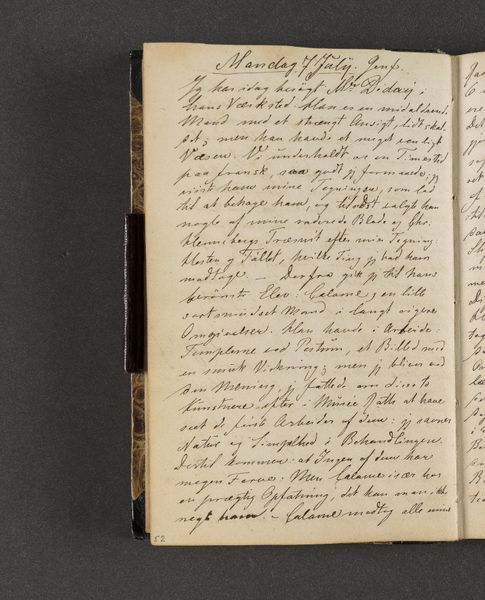 Mandag 7 July. Genf.
Jeg har idag besøgt Mr. Diday i
hans Værksted. Han er en midaldrende
Mand med et strengt Ansigt, lidt skal-
det; men han havde et meget venligt
Væsen. Vi underholdt os en Times tid
paa fransk, saa godt jeg formaaede; jeg
viiste ham mine Tegninger, som lod
til at behage ham, og tilsidst valgte han
nogle af mine raderede Blade og Chr.
Træsnit efter min Tegning:
Høsten og Føllet, hvilke Ting jeg bad ham
modtage. — Derfra gik jeg til hans
berömte Elev: Calame; en lille
sortsmudset Mand i langt rigere
Omgivelser. Han havde i Arbeide:
Templerne ved Pestum, et Billed med
en smuk Virkning; men jeg bliver ved
den Mening, jeg fattede om disse to
Kunstnere efter i Musée Rath at have
seet de første Arbeider af dem: jeg savner
Natur og Simpelhed i Behandlingen.
Dertil kommer: at Ingen af dem har
megen Farve. Men Calame især har
en prægtig Opfatning, det kan man ikke
negte ham. — Calame modtog alle mine
52